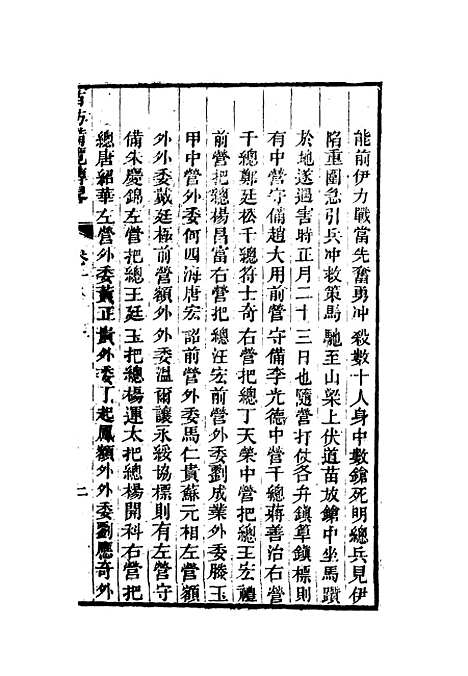 能前伊力戰當先奮勇冲殺數十人身中數鎗死明總兵見伊
陷重圍急引兵冲救策馬馳至山梁上伏道苗放鎗中坐馬躓
於地遂遇害時正月二十三日也隨營打仗各弁鎮草鎮標則
有中營守備趙大用前營守備李光德中營千總蔣善治右營
千總鄭廷松千總符士奇右營把總丁天榮中營把總王宏禮
前營把總楊昌富右營把總汪宏前營外委劉成業外委滕玉
甲中營外委何四海唐宏韶前營外委馬仁貴蘇元相左營額
外外委戴廷極前營額外外委溫爾讓永綏協標則有左營守
備朱慶錦左營把總王廷玉把總楊運太把總楊開科右營把
總唐紹華左營外委黃正貴外委丁起鳳額外外委劉應奇外
苗防備覽傳畧
卷十六
二